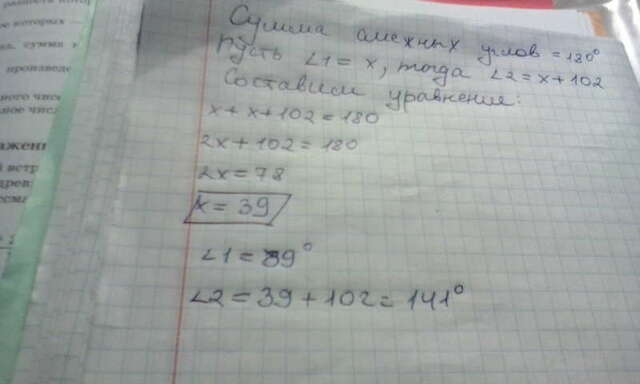 разность кото
ое которых —
сумма
произведе
ного чисе
ное чис
ажени
встр
древ
Сумма смежных углов = 180°
Пусть ∠1 = x, тогда ∠2 = x + 102
Составим уравнение:
x + x + 102 = 180
2x + 102 = 180
2x = 78
x = 39
∠1 = 39°
∠2 = 39 + 102 = 141°